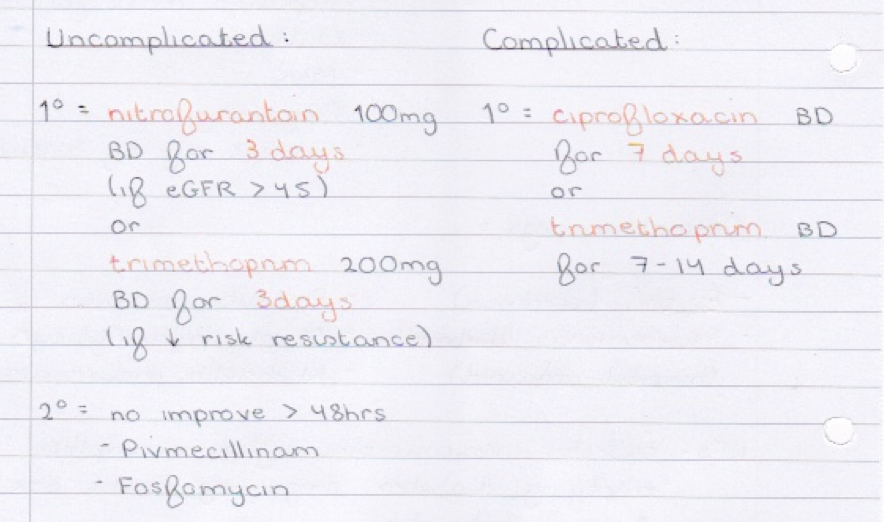 Uncomplicated:
1° = nitrofurantoin 100mg
BD for 3 days
(if eGFR > 45)
or
trimethoprim 200mg
BD for 3days
(if ↓ risk resistance)
2° = no improve > 48hrs
- Pivmecillinam
- Fosfomycin
Complicated:
1° = ciprofloxacin BD
for 7 days
or
trimethoprim BD
for 7-14 days